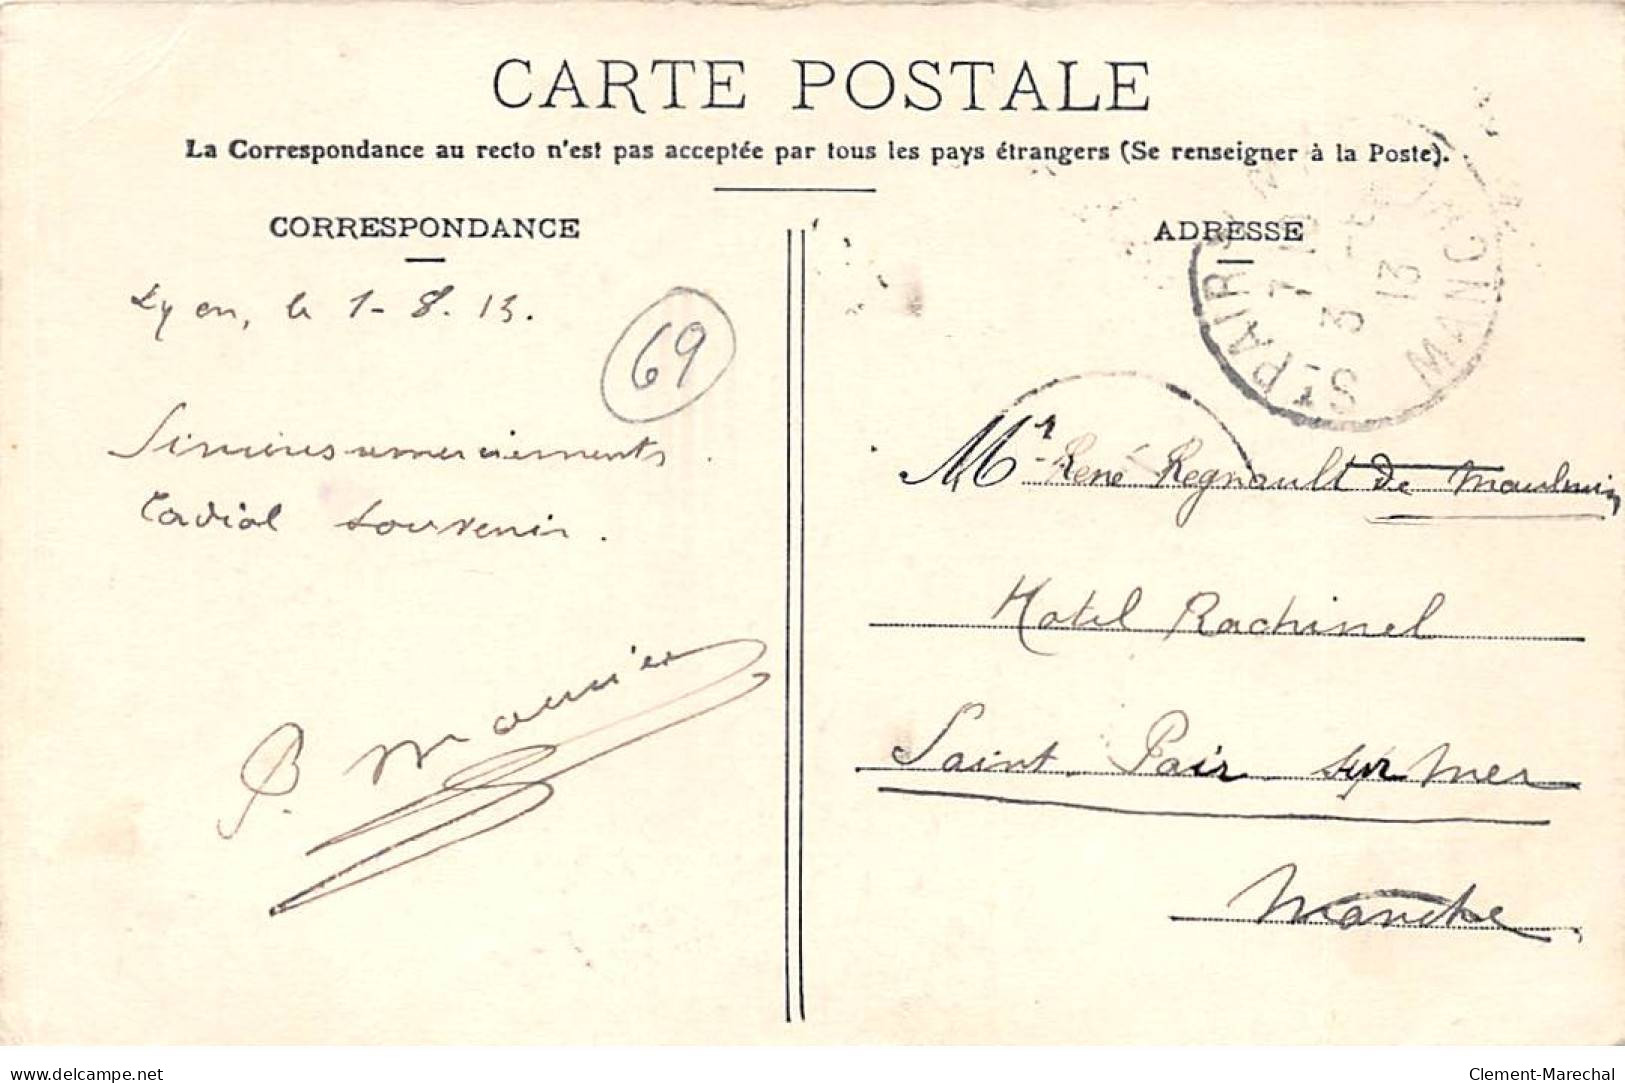 CARTE POSTALE
La Correspondance au recto n'est pas acceptée par tous les pays étrangers (Se renseigner à la Poste).
CORRESPONDANCE
Lyon, le 1-8.13.
69
Sincères remerciements.
Cordial souvenir.
P.
ADRESSE
ST PAIR
MANCHE
3 - 8
13
Mr René Regnault de Maulmin
Hotel Rachinel
Saint Pair sur Mer
Manche
www.delcampe.net
Clement-Marechal